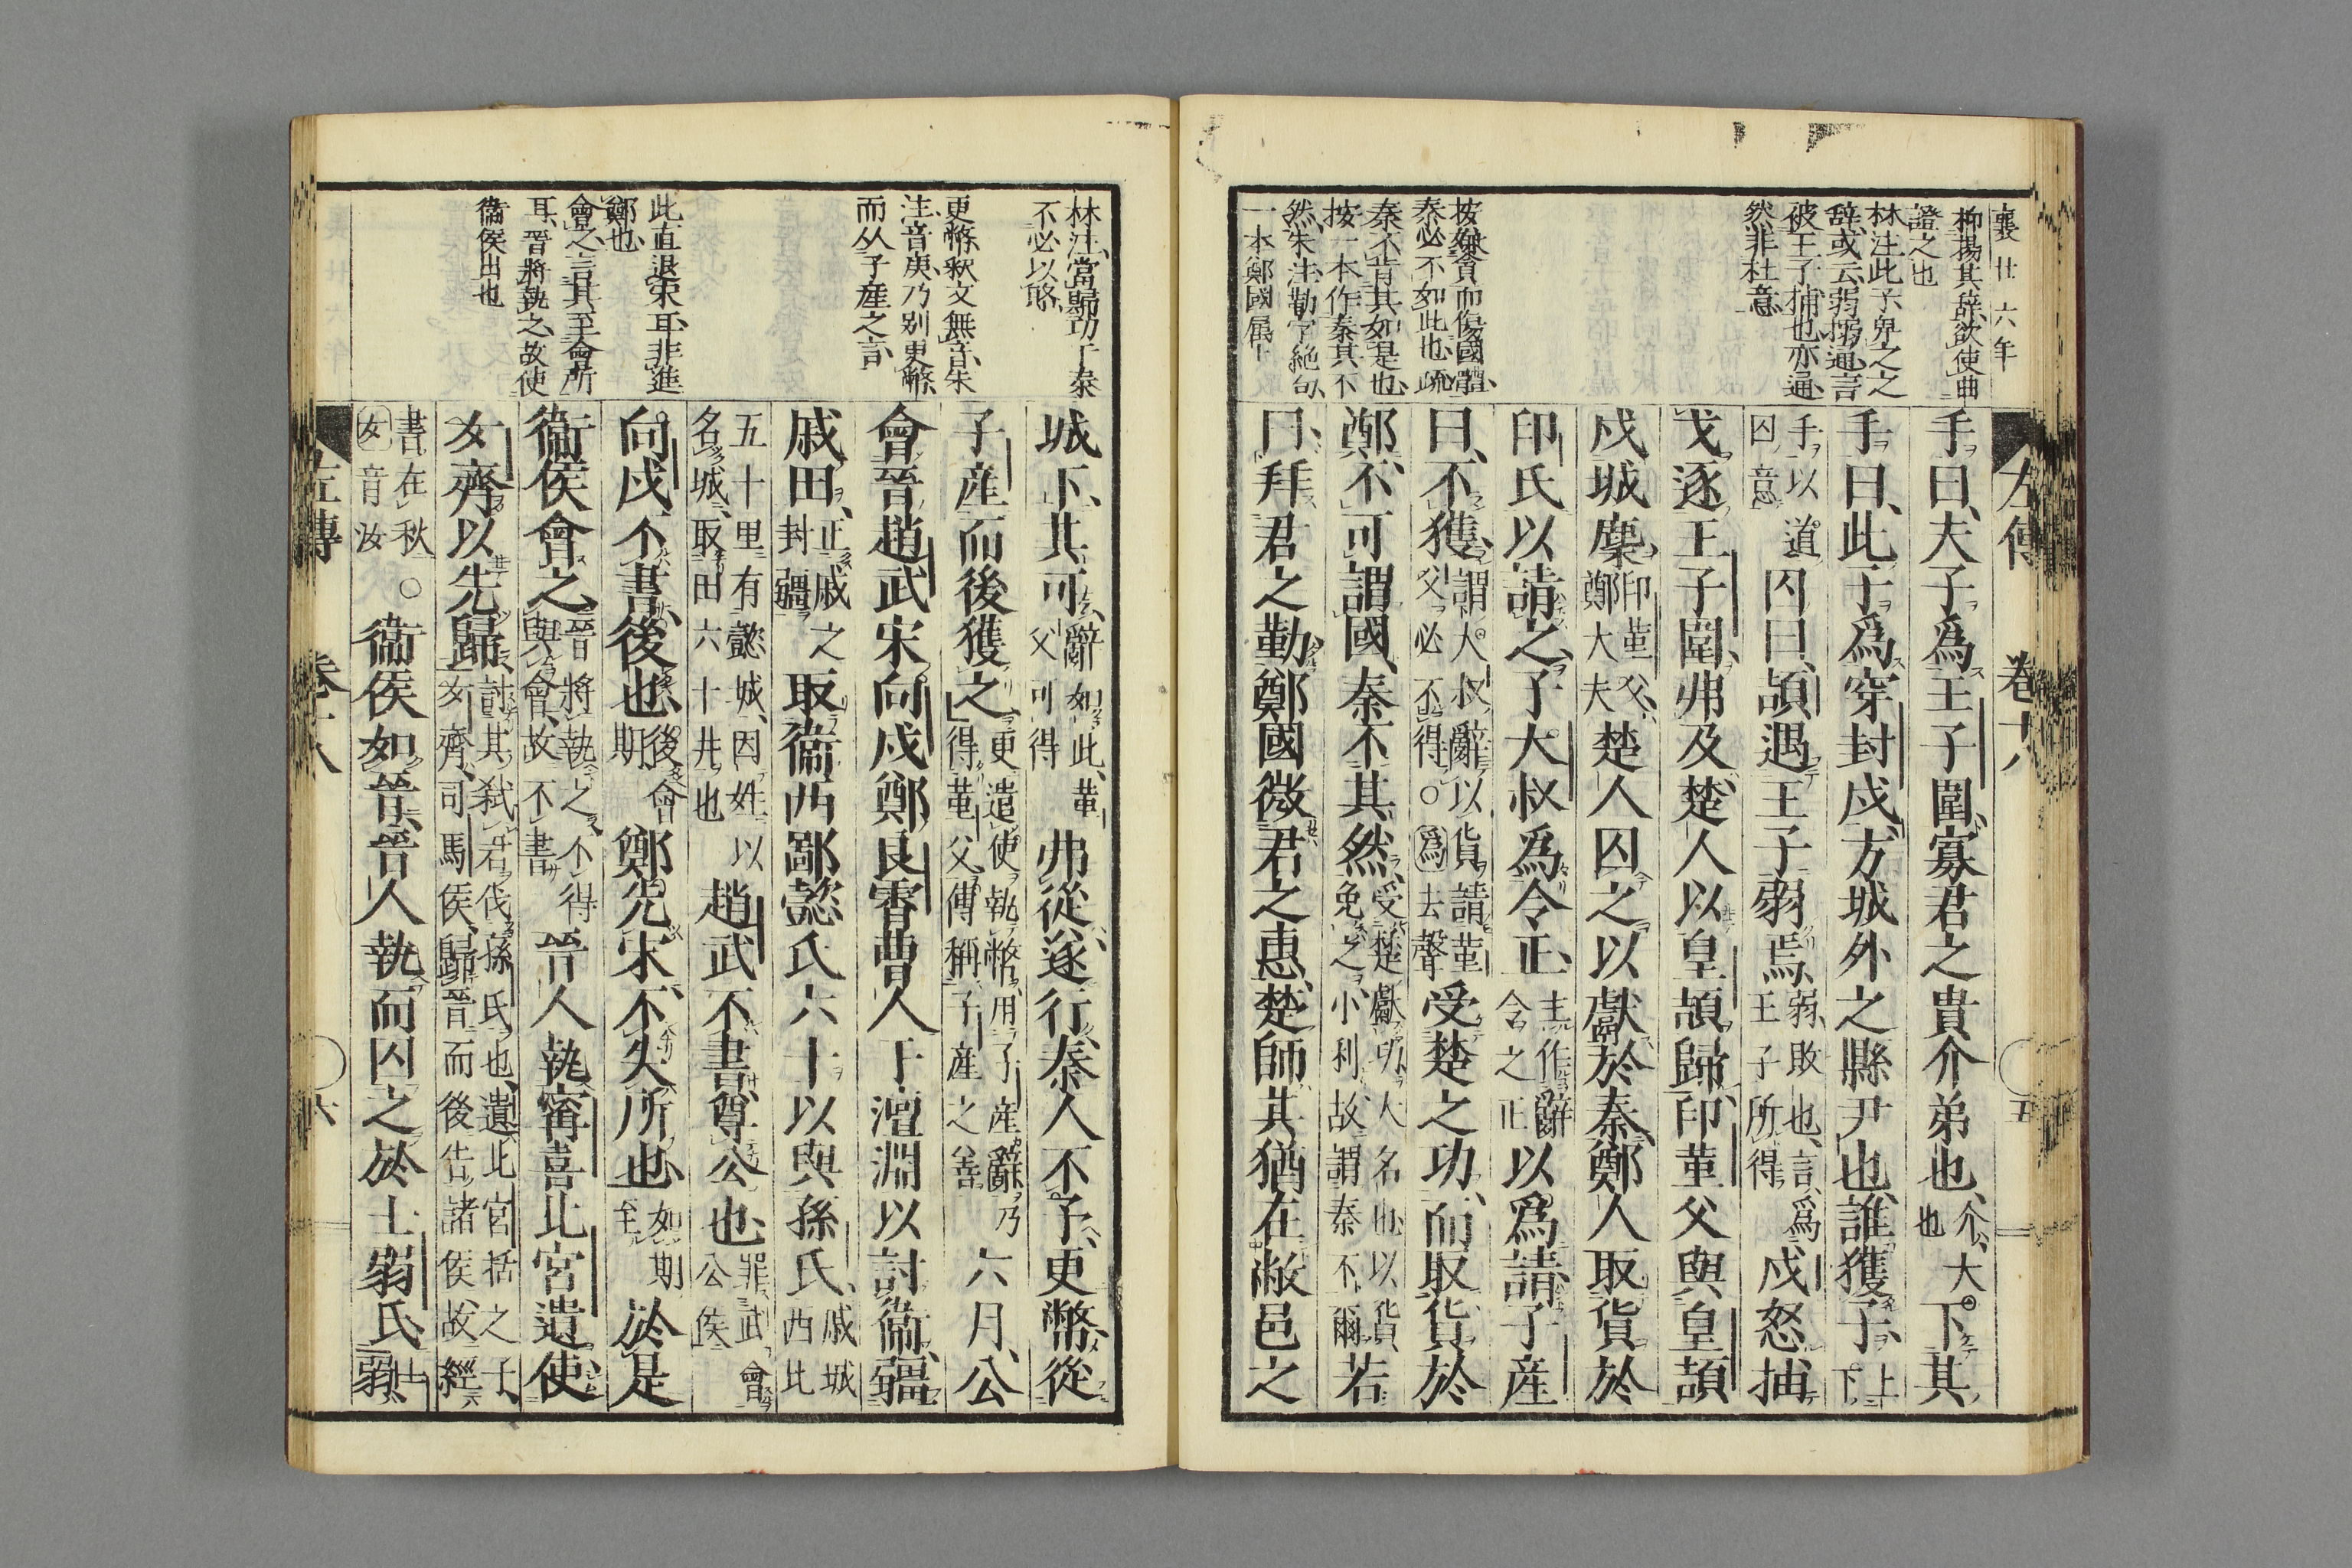 襄廿六年
柳揚其辞、欲使曲
證之也
林注此子、卑之之
辞、或云弱溺通、言
被王子捕也、亦通、
然非杜意
按嫌貪而傷國體、
秦必不如此也、疏
秦不肯其如是也、
按一本作秦其不
然、朱注勤字絶句、
一本鄭國属上
左傳　卷十八　五
手曰、夫子為王子圍、寡君之貴介弟也、介、大也下其
手曰、此子為穿封戌、方城外之縣尹也、誰獲子、上下
手以道囚意囚曰、頡遇王子弱焉、弱、敗也、言為王子所得戌怒抽
戈逐王子圍、弗及、楚人以皇頡歸、印堇父與皇頡
戍城麇、印堇父、鄭大夫楚人囚之、以獻於秦、鄭人取貨於
印氏以請之、子大叔為令正、主作辭令之正以為請、子産
曰、不獲、謂大叔辭以貨請堇父、必不得○為去聲受楚之功、而取貨於
鄭、不可謂國、秦不其然、受楚獻功、大名也、以貨免之、小利、故謂秦不爾若
曰、拜君之勤鄭國、微君之惠、楚師其猶在敝邑之
林注、當歸功于秦
不必以賂
更幣、釈文無音、朱
注、音庚、乃別更幣、
而从子産之言
此直退宋耳、非進
鄭也
會之、言其至會所
耳、晉將執之、故使
衞侯出也
城下、其可、辭如此、堇父可得弗從、遂行、秦人不予、更幣、從
子産、而後獲之、更遣使執幣、用子産辭、乃得堇父、傳稱子産之善六月、公
會晉趙武宋向戌鄭良霄曹人于澶淵、以討衞、疆
戚田、正戚之封疆取衞西鄙懿氏六十以與孫氏、戚城西北
五十里有懿城、因姓以名城、取田六十井也趙武不書、尊公也、罪武會公侯
向戌不書、後也、後會期鄭先宋、不失所也、如期至於是
衞侯會之、晉將執之、不得與會、故不書晉人執甯喜北宮遺、使
女齊以先歸、討其弑君伐孫氏也、遺、北宮括之子、女齊、司馬侯、歸晉而後告諸侯、故經
書在秋○女音汝衞侯如晉、晉人執而囚之於士弱氏、士弱
左傳　卷十八　六